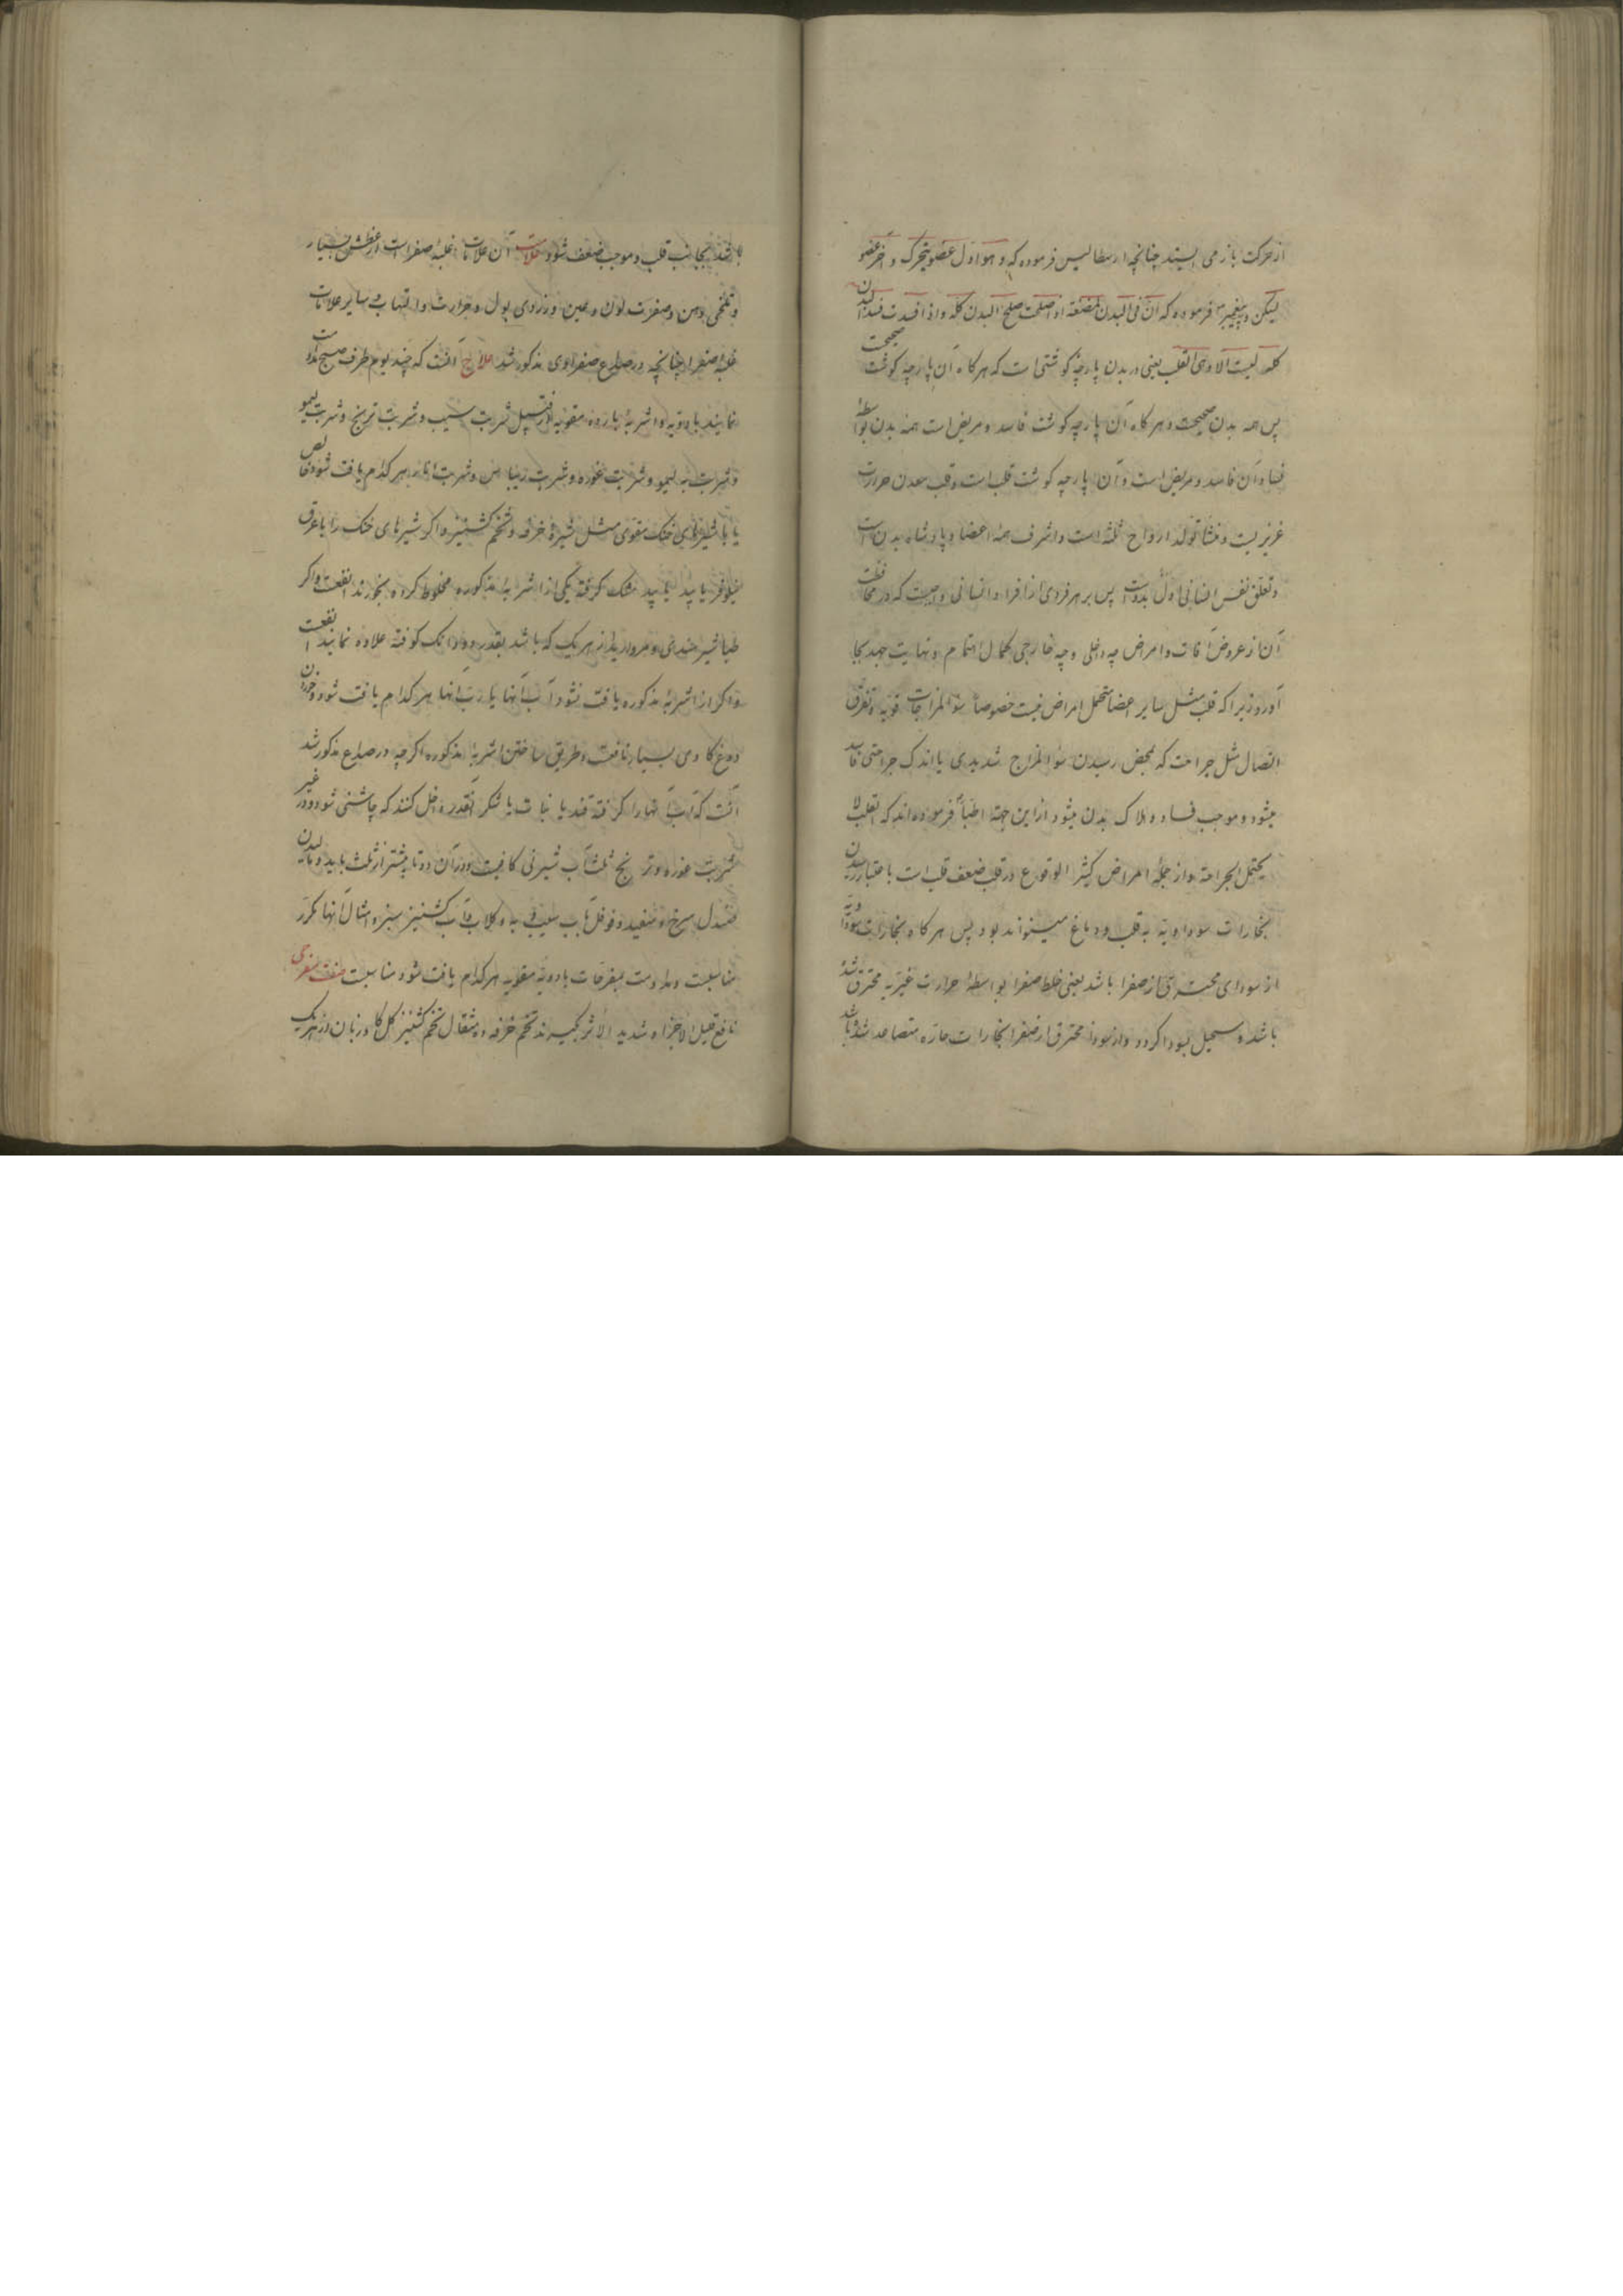 از حرکت باز می ایستد چنانچه ارسطالیس فرموده که و هو اول عضو یتحرک و آخر عضو
یسکن و پیغمبر فرموده که ان فی البدن لمضغة اذا صلحت صلح البدن کله و اذا فسدت فسد البدن
کله لیست الا و هی القلب یعنی در بدن پارچه کوشتی است که هر کاه آن پارچه کوشت صحیحست
پس همه بدن صحیحست و هر کاه آن پارچه کوشت فاسد و مریض است همه بدن بواسطهٔ
فساد آن فاسد و مریض است و آن پارچه کوشت قلب است و قلب معدن حرارت
غریزیست و منشأ تولد ارواح ثلثه است و اشرف همه اعضا و پادشاه بدن است
و تعلق نفس انسانی اول بدوست پس بر هر فردی از افراد انسانی واجبست که در محافظت
آن از عروض آفات و امراض چه داخلی و چه خارجی کمال اهتمام و نهایت جهد بجا
آورد زیرا که قلب مثل سایر اعضا متحمل امراض نیست خصوصاً سوء المزاجات قویه و تفرق
اتصال مثل جراحت که بمحض رسیدن سوء المزاج شدیدی یا اندک جراحتی فاسد
میشود و موجب فساد و هلاک بدن میشود از این جهة اطبا فرموده‌اند که القلب لا
یحتمل الجراحة و از جملهٔ امراض کثیر الوقوع در قلب ضعف قلب است باعتبار رسیدن
بخارات سوداویه به قلب و دماغ میتواند بود پس هر کاه بخارات سوداویه
از سودای محترقی از صفرا باشد یعنی خلط صفرا بواسطهٔ حرارت غیریه محترق شده
باشد و مستحیل بسودا کردد و از سودا محترق از صفرا بخارات حاره متصاعد شده باشد
باشد بجانب قلب و موجب ضعف شود علامت آن علامات غلبهٔ صفراست از عطش بسیار
و تلخی دهن و صفرت لون و عین و زردی بول و حرارت و التهاب و سایر علامات
غلبهٔ صفرا چنانچه در صداع صفراوی مذکور شد علاج آنست که چند یوم طرف صبح مداومت
نمایند بادویه و اشربهٔ بارده مقویه از قبیل شربت سیب و شربت ترنج و شربت لیمو
و شربت به لیمو و شربت غوره و شربت ریباس و شربت انار هر کدام یافت شود خالص
یا با شیرهای خنک مقوی مثل شیرهٔ خرفه و تخم کشنیز و اکر شیرهای خنک را با عرق
نیلوفر یا بید یا بید مشک کرفته یکی از اشربهٔ مذکوره مخلوط کرده بخورند انفعست و اکر
طباشیر هندی و مروارید از هر یک که باشد بقدر دو دانک کوفته علاوه نمایند انفعست
و اکر از اشربهٔ مذکوره یافت نشود آب آنها یا رب آنها هر کدام یافت شود و خوردن
دوغ کاوی بسیار نافعست و طریق ساختن اشربهٔ مذکوره اکرچه در صداع مذکور شد
آنست که آب آنها را کرفته قند یا نبات یا شکر آنقدر داخل کنند که چاشنی شود و در غیر
شربت غوره و ترنج ثلث آب شیرنی کافیست و در آن دو تا بیشتر از ثلث باید و مالیدن
صندل سرخ و سفید و فوفل بآب سیب و به و کلاب و آب کشنیز سبز و امثال آنها مکرر
مناسبست و مداومت بمفرحات بادویه مقویه هر کدام یافت شود مناسبست صفت مفرحی
نافع قلیل الاجزاء شدید الاثر بکیرند تخم خرفه ده مثقال تخم کشنیز کل کاوزبان از هر یک